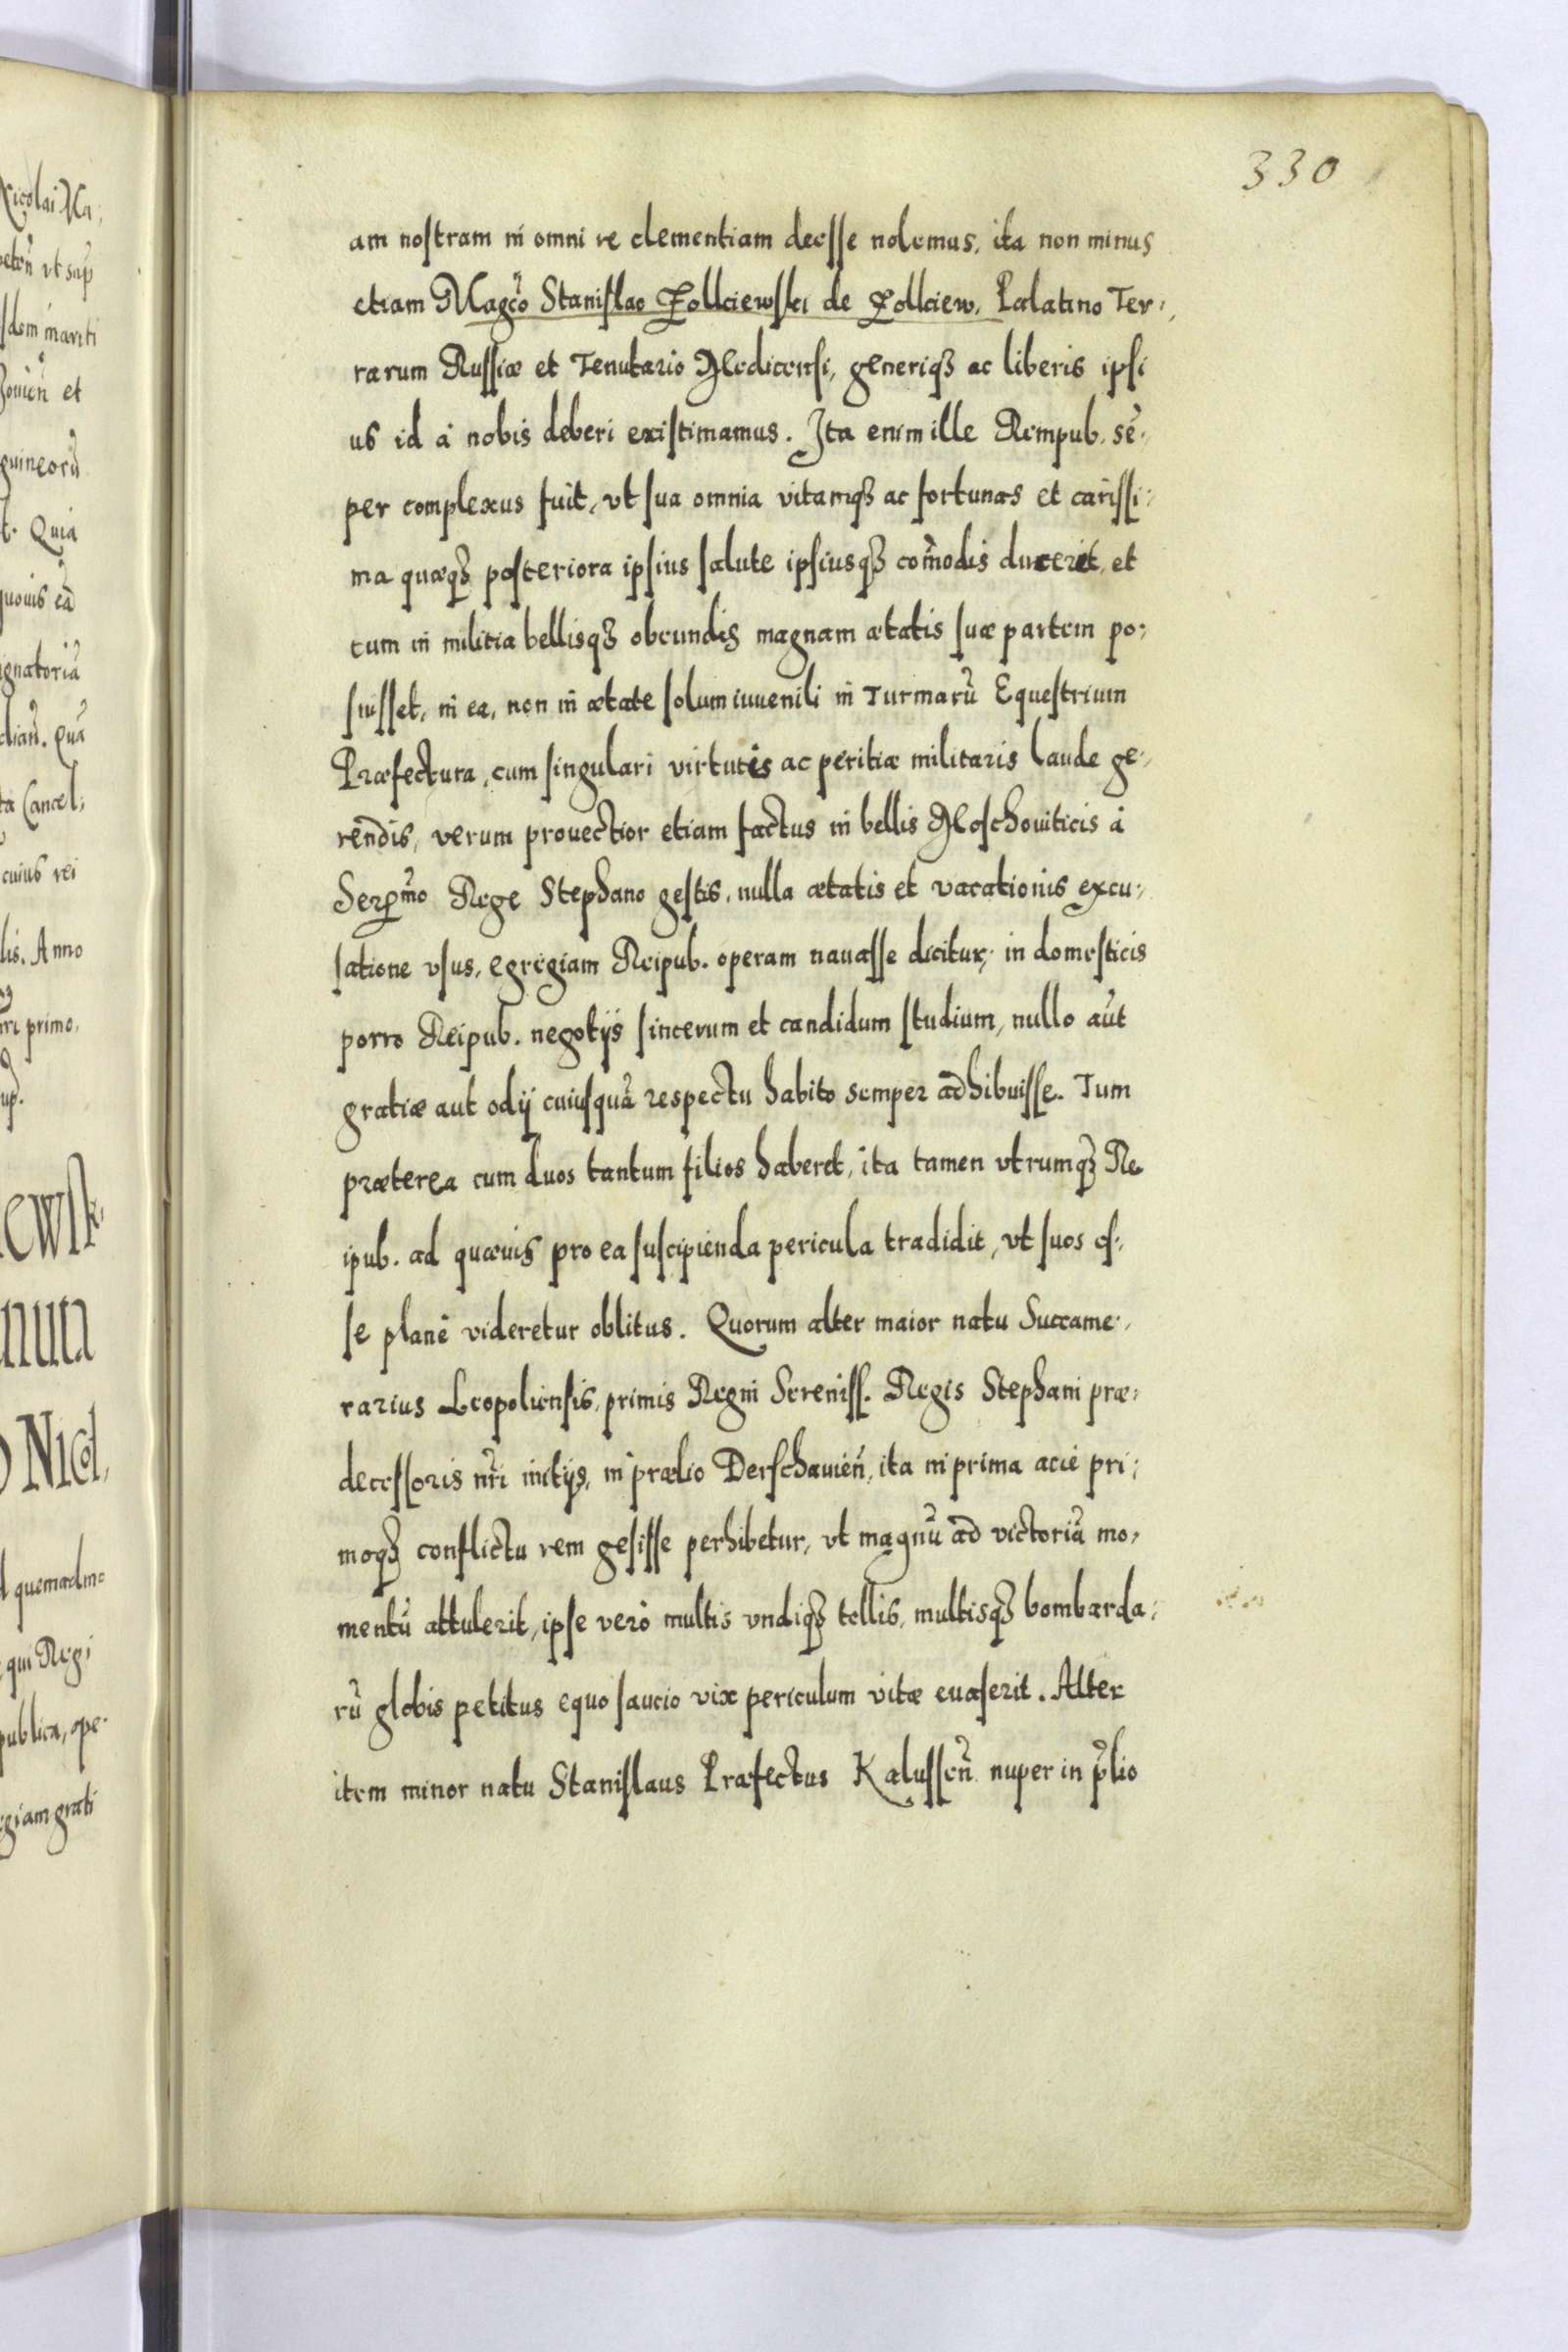 330
am nostram in omni re clementiam deesse nolumus, ita non minus
etiam Magcõ Stanislao Żolkiewski de Żolkiew, Palatino Ter,
rarum Russiæ et Tenutario Medicensi, generiqȝ ac liberis ipsi
us id à nobis deberi existimamus. Ita enim ille Rempub. sẽ,
per complexus fuit, vt sua omnia vitamqȝ ac fortunas et carissi,
ma quæqȝ posteriora ipsius salute ipsiusqȝ com̃odis duxerit, et
cum in militia bellisqȝ obeundis magnam ætatis suæ partem po,
suisset, in ea, non in ætate solum iuuenili in Turmarũ Equestrium
Præfectura, cum singulari virtutis ac peritiæ militaris laude ge,
rendis, verum prouectior etiam factus in bellis Moschouiticis à
Sermõ Rege Stephano gestis, nulla ætatis et vacationis excu,
satione vsus, egregiam Reipub. operam nauasse dicitur, in domesticis
porro Reipub. negotijs sincerum et candidum studium, nullo aut
gratiæ aut odij cuiusquã respectu habito semper adhibuisse. Tum
præterea cum duos tantum filios haberet, ita tamen vtrumqȝ Re
ipub. ad quæuis pro ea suscipienda pericula tradidit, vt suos es,
se planè videretur oblitus. Quorum alter maior natu Succame,
rarius Leopoliensis, primis Regni Sereniss. Regis Stephani præ,
decessoris nr̃i initijs, in prælio Derschauieñ, ita in prima acie pri,
moqȝ conflictu rem gesisse perhibetur, vt magnũ ad victoriã mo,
mentũ attulerit, ipse verò multis vndiqȝ tellis, multisqȝ bombarda,
rũ globis petitus equo saucio vix periculum vitæ euaserit. Alter
item minor natu Stanislaus Præfectus Kalusseñ nuper in p̃lio
Nicolai Ma,
vt sup
mariti
et
guineorũ
Quia
quouis eã
Cancel,
cuius rei
Anno
primo,
Nicol,
quemadmo
qui Regi
publica, ope,
egiam grati